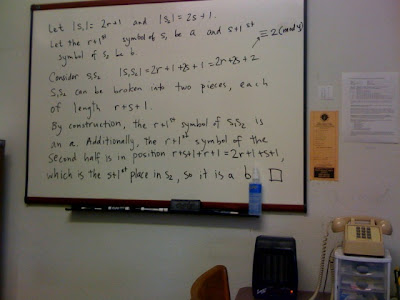 Let |S₁| = 2r+1 and |S₂| = 2s+1.
Let the r+1ˢᵗ symbol of S₁ be a and s+1ˢᵗ
symbol of S₂ be b.
≡ 2 (mod 4)
Consider S₁S₂ |S₁S₂| = 2r+1+2s+1 = 2r+2s+2
S₁S₂ can be broken into two pieces, each
of length r+s+1.
By construction, the r+1ˢᵗ symbol of S₁S₂ is
an a. Additionally, the r+1ˢᵗ symbol of the
second half is in position r+s+1+r+1 = 2r+1+s+1,
which is the s+1ˢᵗ place in S₂, so it is a b □